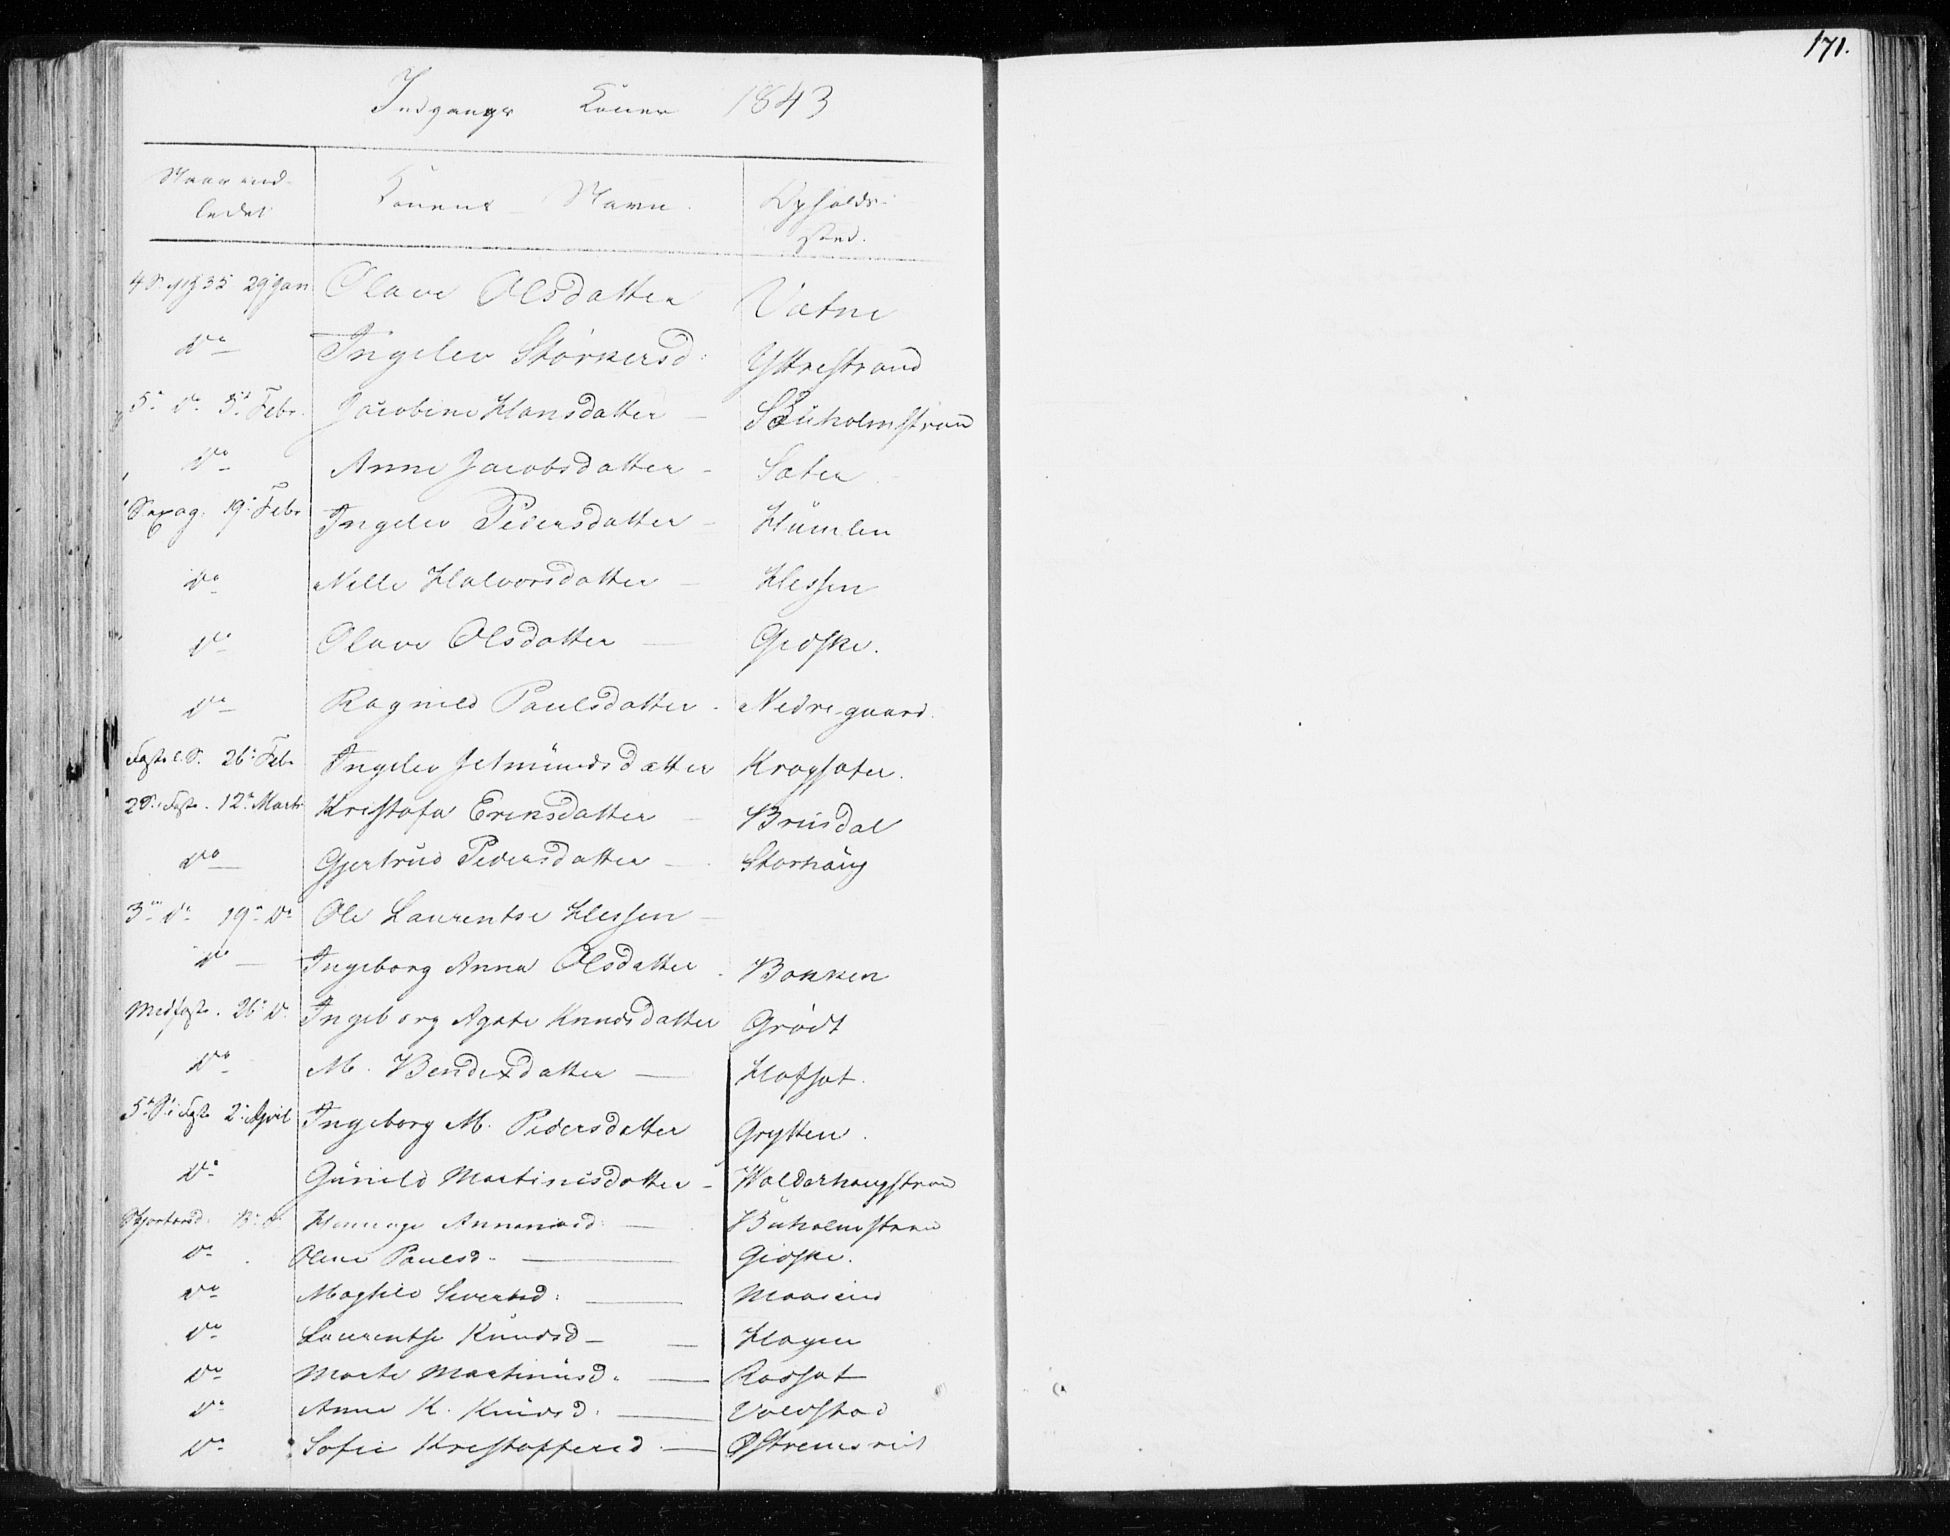 171.
Indgangs Koner 1843
Naar ind-
ledet
Konens Navn.
Opholds-
sted.
29 Jan Olave Olsdatter Vatne
do Ingelev Størkersd: Yttrestrand
5te do 5te Febr. Jacobine Hansdatter
do Anne Jacobsdatter - Sæter
Sexag. 19de Febr Ingelev Pedersdatter - Humlen
do Nille Halvorsdatter - Hessen
do Olave Olsdatter - Gidske.
do Ragnild Paulsdatter - Nedregaard.
Fastel.S. 26de Febr Ingelev Jetmundsdatter Kragsæter.
2 S. i Faste. 12te Marts Kristofa Eriksdatter - Brusdal
do Gjertrud Pedersdatter - Storhaug
3die do 19de do Ole Laurentse Hessen -
do Ingeborg Anna Olsdatter - Bakken
Midfaste. 26de do Ingeborg Agate Knudsdatter Grødt
do M. Bendixdatter - Hofsæt.
5te S. i Faste 2den April Ingeborg M. Pedersdatter Grytten.
do Gunild Martinusdatter - Walderhaugstrand
Skjertorsd. 13de do Ananiasd: - Buholmstrand
do Oline Paulsd - Gidske.
do Maghild Sivertsd: -
do Laurentse Knudsd - Hagen
do Marte Martinusd. - Rossæt
do Anne K. Knudsd. - Voldstad
do Sofie Kristoffersd. - Østremsvik